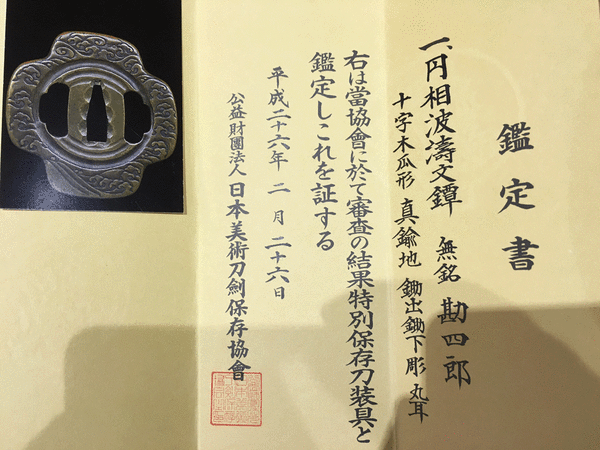 鑑定書
一、円相波濤文鐔 無銘 勘四郎
十字木瓜形 真鍮地 鋤出鋤下彫 丸耳
右は當協會に於て審査の結果特別保存刀装具と
鑑定しこれを証する
平成二十六年 二月 二十六日
公益財團法人 日本美術刀劍保存協會